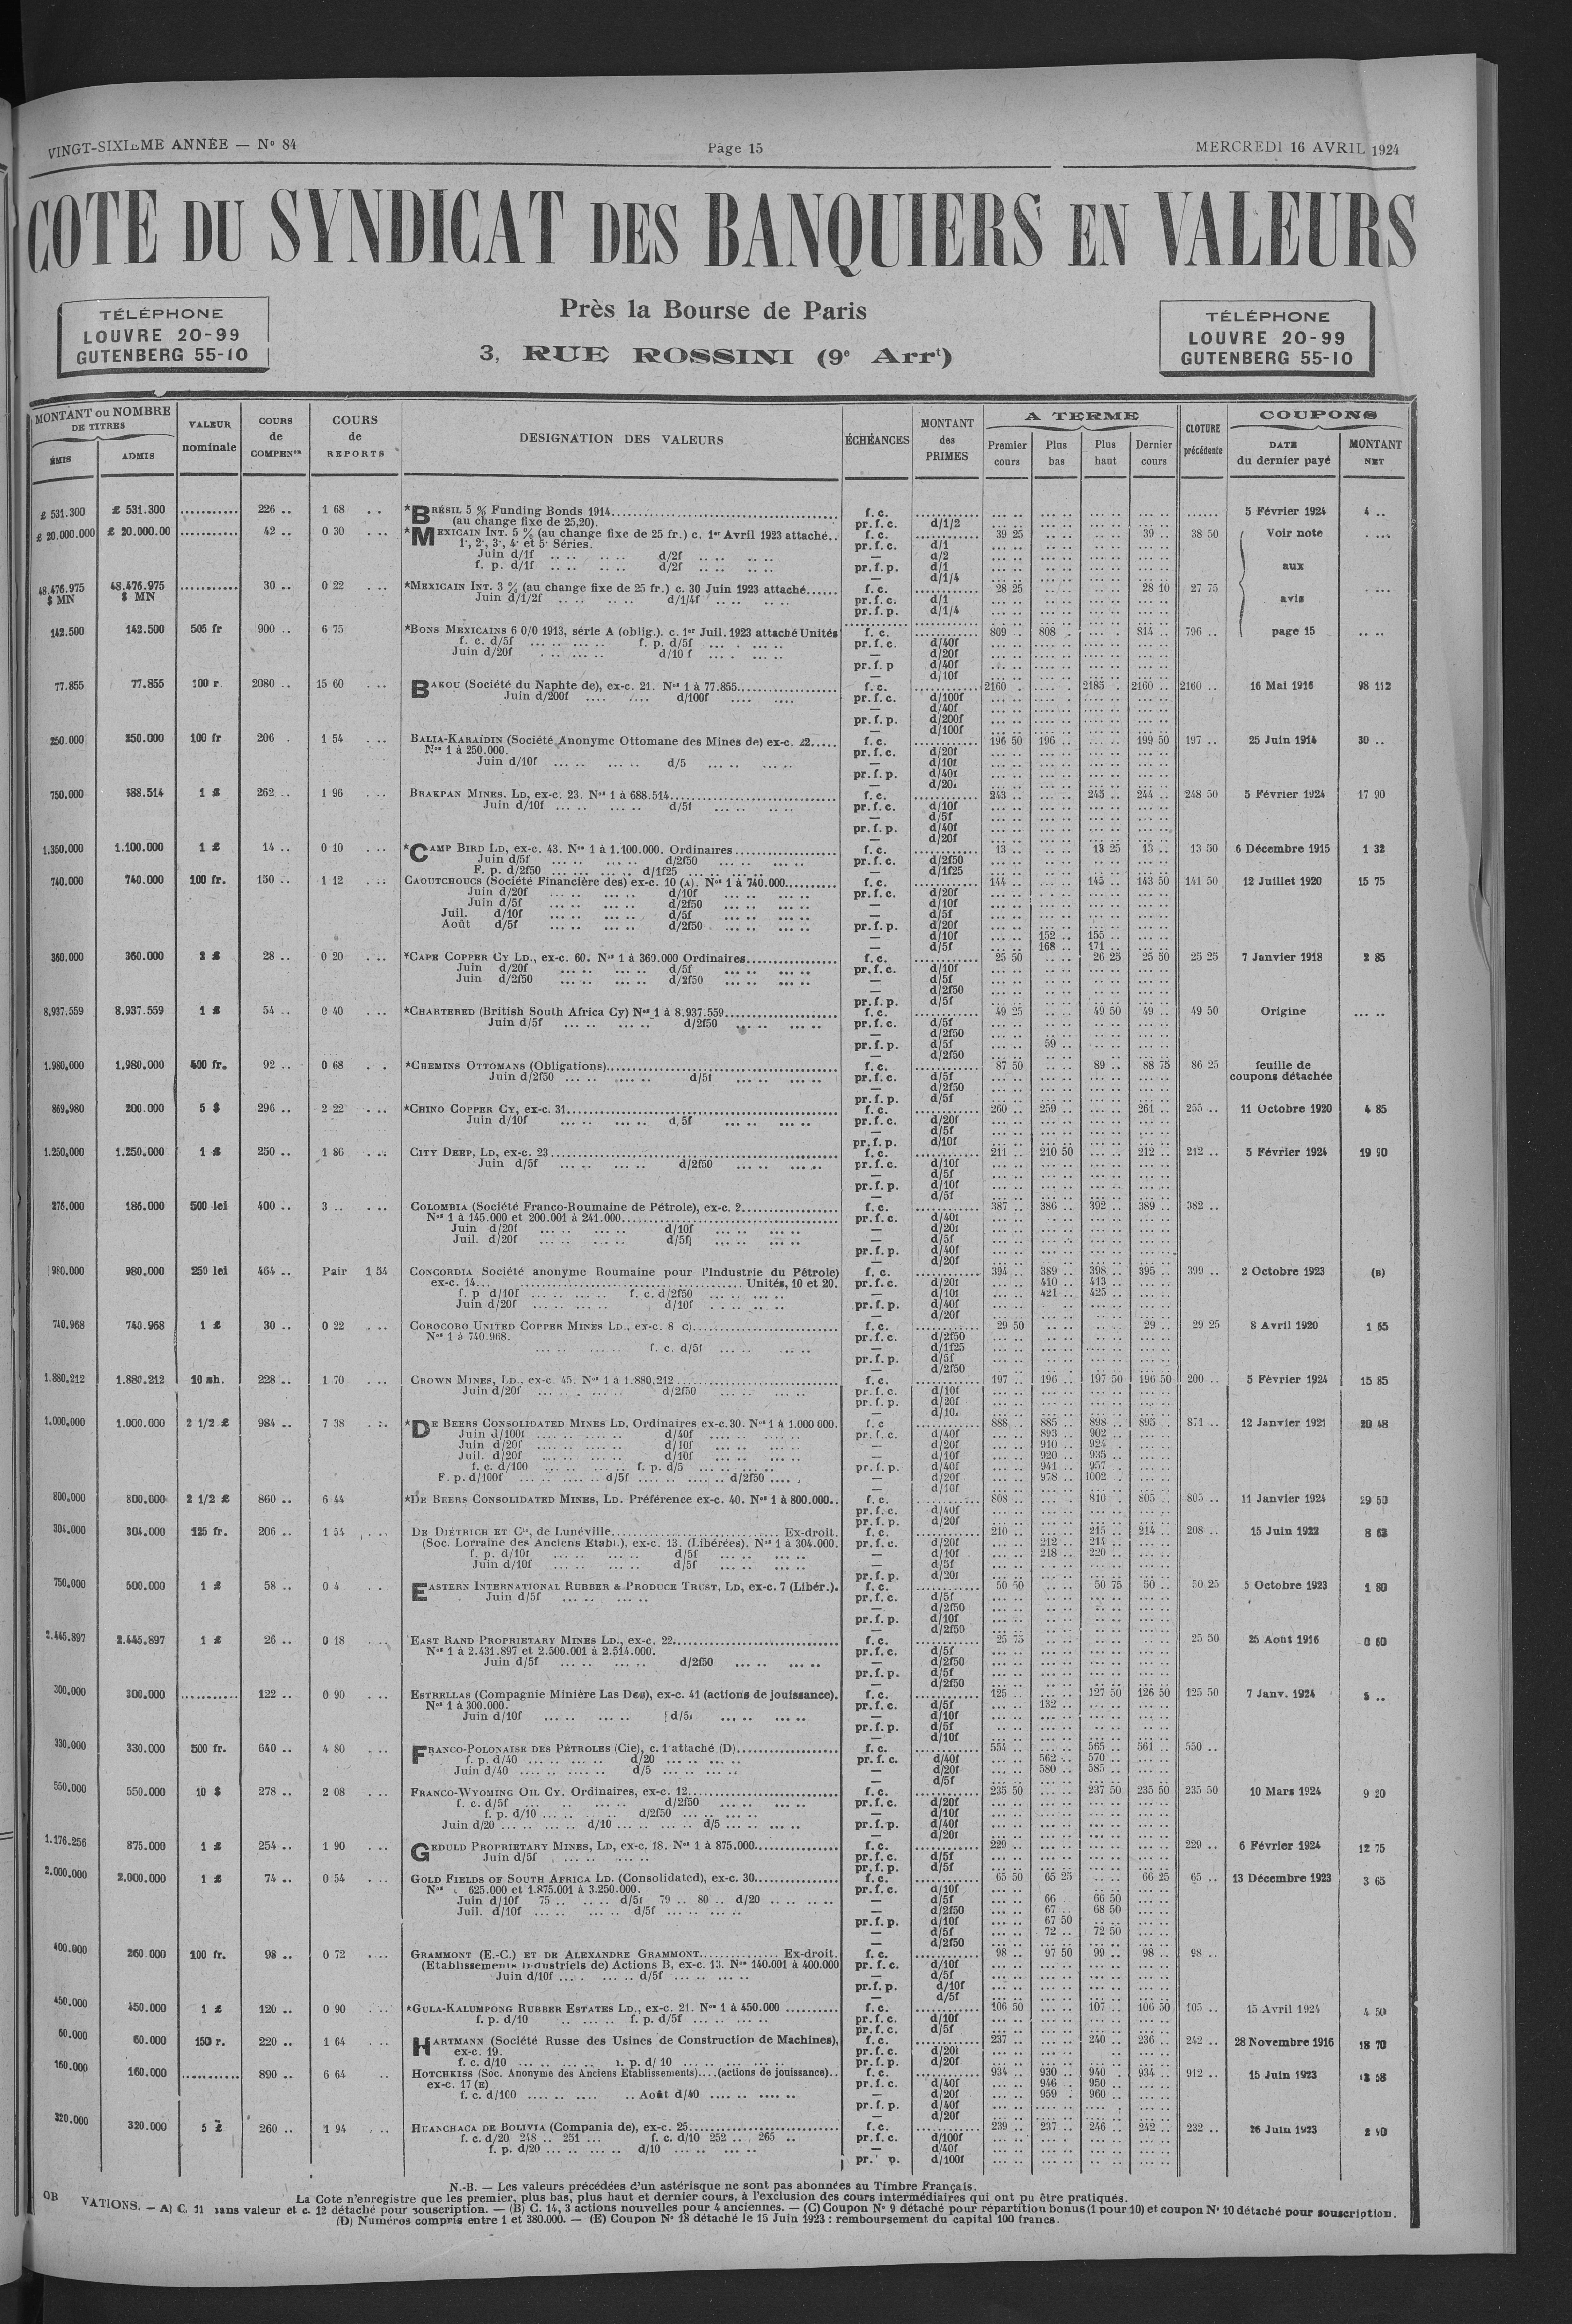 VINGT-SIXIEME ANNÉE — Nº 84
Page 15
MERCREDI 16 AVRIL 1924
COTE DU SYNDICAT DES BANQUIERS EN VALEURS
TÉLÉPHONE
LOUVRE 20-99
GUTENBERG 55-10
Près la Bourse de Paris
3, RUE ROSSINI (9e Arrt)
TÉLÉPHONE
LOUVRE 20-99
GUTENBERG 55-10
MONTANT ou NOMBRE DE TITRES
ÉMIS
ADMIS
VALEUR nominale
COURS de COMPENon
COURS de REPORTS
DESIGNATION DES VALEURS
ÉCHÉANCES
MONTANT des PRIMES
A TERME
Premier cours
Plus bas
Plus haut
Dernier cours
CLOTURE précédente
COUPONS
DATE du dernier payé
MONTANT NET
£ 531.300 £ 531.300 ........... 226 .. 1 68 .. *BRÉSIL 5 % Funding Bonds 1914 f. c. 5 Février 1924 4 ..
(au change fixe de 25,20). pr. f. c. d/1/2
£ 20.000.000 £ 20.000.00 ........... 42 .. 0 30 ... *MEXICAIN INT. 5 % (au change fixe de 25 fr.) c. 1er Avril 1923 attaché.. f. c. 39 25 39 .. 38 50 Voir note
1·, 2·, 3·, 4· et 5· Séries. pr. f. c. d/1
Juin d/1f .. .. d/2f .. .. — d/2
f. p. d/1f .. .. d/2f .. .. pr. f. p. d/1 aux
— d/1/4
48.476.975 $ MN 48.476.975 $ MN ........... 30 .. 0 22 ... *MEXICAIN INT. 3 % (au change fixe de 25 fr.) c. 30 Juin 1923 attaché...... f. c. 28 25 28 10 27 75
Juin d/1/2f .. .. d/1/4f .. .. pr. f. c. d/1 avis
pr. f. p. d/1/4
142.500 142.500 505 fr 900 .. 6 75 *BONS MEXICAINS 6 0/0 1913, série A (oblig.). c. 1er Juil. 1923 attaché Unités f. c. 809 . 808 . 814 .. 796 .. page 15
f. c. d/5f ... .. f. p. d/5f ... .. pr. f. c. d/40f
Juin d/20f ... .. d/10 f ... .. — d/20f
pr. f. p d/40f
— d/10f
77.855 77.855 100 r. 2080 .. 15 60 ... BAKOU (Société du Naphte de), ex-c. 21. Nos 1 à 77.855 f. c. 2160 . 2185 . 2160 .. 2160 .. 16 Mai 1916 98 112
Juin d/200f .... d/100f .... pr. f. c. d/100f
— d/40f
pr. f. p. d/200f
— d/100f
250.000 250.000 100 fr 206 . 1 54 ... BALIA-KARAÏDIN (Société Anonyme Ottomane des Mines de) ex-c. 22..... f. c. 196 50 196 .. 199 50 197 .. 25 Juin 1914 30 ..
Nos 1 à 250.000. pr. f. c. d/20f
Juin d/10f ... .. d/5 ... .. — d/10f
pr. f. p. d/40f
— d/20.
750.000 688.514 1 £ 262 .. 1 96 ... BRAKPAN MINES. LD, ex-c. 23. Nos 1 à 688.514 f. c. 243 .. 245 .. 244 .. 248 50 5 Février 1924 17 90
Juin d/10f ... .. d/5f ... .. pr. f. c. d/10f
— d/5f
pr. f. p. d/40f
— d/20f
1.350.000 1.100.000 1 £ 14 .. 0 10 ... *CAMP BIRD LD, ex-c. 43. Nos 1 à 1.100.000. Ordinaires f. c. 13 .. 13 25 13 .. 13 50 6 Décembre 1915 1 32
Juin d/5f ... .. d/2f50 ... .. pr. f. c. d/2f50
F. p. d/2f50 ... .. d/1f25 ... .. — d/1f25
740.000 740.000 100 fr. 150 .. 1 12 ... CAOUTCHOUCS (Société Financière des) ex-c. 10 (A). Nos 1 à 740.000 f. c. 144 .. 145 .. 143 50 141 50 12 Juillet 1920 15 75
Juin d/20f ... .. d/10f ... .. pr. f. c. d/20f
Juin d/5f ... .. d/2f50 ... .. — d/10f
Juil. d/10f ... .. d/5f ... .. — d/5f
Août d/5f ... .. d/2f50 ... .. pr. f. p. d/20f
— d/10f 152 .. 155 ..
— d/5f 168 .. 171 ..
360.000 360.000 2 £ 28 .. 0 20 ... *CAPE COPPER CY LD., ex-c. 60. Nos 1 à 360.000 Ordinaires f. c. 25 50 26 25 25 50 25 25 7 Janvier 1918 2 85
Juin d/20f ... .. d/5f ... .. pr. f. c. d/10f
Juin d/2f50 ... .. d/2f50 ... .. — d/5f
— d/2f50
pr. f. p. d/5f
8.937.559 8.937.559 1 £ 54 .. 0 40 ... *CHARTERED (British South Africa Cy) Nos 1 à 8.937.559 f. c. 49 25 49 50 49 .. 49 50 Origine ... ..
Juin d/5f ... .. d/2f50 ... .. pr. f. c. d/5f
— d/2f50
pr. f. p. d/5f 59 ..
— d/2f50
1.980.000 1.980.000 400 fr. 92 .. 0 68 .. *CHEMINS OTTOMANS (Obligations) f. c. 87 50 89 .. 88 75 86 25 feuille de coupons détachée
Juin d/2f50 ... .. d/5f ... .. pr. f. c. d/5f
— d/2f50
pr. f. p. d/5f
869.980 200.000 5 $ 296 .. 2 22 ... *CHINO COPPER CY, ex-c. 31 f. c. 260 .. 259 .. 261 .. 255 .. 11 Octobre 1920 4 85
Juin d/10f ... .. d/5f ... .. pr. f. c. d/20f
— d/5f
pr. f. p. d/10f
1.250.000 1.250.000 1 £ 250 .. 1 86 ... CITY DEEP, LD, ex-c. 23 f. c. 211 .. 210 50 212 .. 212 .. 5 Février 1924 19 90
Juin d/5f ... .. d/2f50 ... .. pr. f. c. d/10f
— d/5f
pr. f. p. d/10f
— d/5f
276.000 186.000 500 lei 400 .. 3 .. ... COLOMBIA (Société Franco-Roumaine de Pétrole), ex-c. 2 f. c. 387 .. 386 .. 392 .. 389 .. 382 ..
Nos 1 à 145.000 et 200.001 à 241.000 pr. f. c. d/40f
Juin d/20f ... .. d/10f ... .. — d/20f
Juil. d/20f ... .. d/5f ... .. — d/5f
pr. f. p. d/40f
— d/20f
980.000 980.000 250 lei 464 .. Pair 1 54 CONCORDIA Société anonyme Roumaine pour l'Industrie du Pétrole) f. c. 394 .. 389 .. 398 .. 395 .. 399 .. 2 Octobre 1923 (B)
ex-c. 14... Unités, 10 et 20. pr. f. c. d/20f 410 .. 413 ..
f. p d/10f ... .. f. c. d/2f50 ... .. — d/10f 421 .. 425 ..
Juin d/20f ... .. d/10f ... .. pr. f. p. d/40f
— d/20f
740.968 740.968 1 £ 30 .. 0 22 ... COROCORO UNITED COPPER MINES LD., ex-c. 8 C) f. c. 29 50 29 .. 29 25 8 Avril 1920 1 65
Nos 1 à 740.968. pr. f. c. d/2f50
... .. f. c. d/5f ... .. — d/1f25
pr. f. p. d/5f
— d/2f50
1.880.212 1.880.212 10 sh. 228 .. 1 70 ... CROWN MINES, LD., ex-c. 45. Nos 1 à 1.880.212 f. c. 197 .. 196 .. 197 50 196 50 200 .. 5 Février 1924 15 85
Juin d/20f ... .. d/2f50 ... .. pr. f. c. d/10f
pr. f. p. d/20f
— d/10.
1.000.000 1.000.000 2 1/2 £ 984 .. 7 38 ... *DE BEERS CONSOLIDATED MINES LD. Ordinaires ex-c. 30. Nos 1 à 1.000 000. f. c 888 . 885 .. 898 .. 895 .. 871 .. 12 Janvier 1921 20 48
Juin d/100f ... .. d/40f ... .. pr. f. c. d/40f 893 .. 902 ..
Juin d/20f ... .. d/10f ... .. — d/20f 910 .. 924 .
Juil. d/20f ... .. d/10f ... .. — d/10f 920 .. 935 ..
f. c. d/100 ... .. f. p. d/5 ... .. pr. f. p. d/40f 941 .. 957 .
F. p. d/100f ... .. d/5f ... .. d/2f50 ... — d/20f 978 .. 1002 .
— d/10f
800.000 800.000 2 1/2 £ 860 .. 6 44 *DE BEERS CONSOLIDATED MINES, LD. Préférence ex-c. 40. Nos 1 à 800.000.. f. c. 808 .. 810 . 805 .. 805 .. 11 Janvier 1924 29 50
pr. f. c. d/40f
pr. f. p. d/20f
304.000 304.000 125 fr. 206 .. 1 54 ... DE DIÉTRICH ET Cie, de Lunéville Ex-droit. f. c. 210 .. 215 .. 214 .. 208 .. 15 Juin 1922 8 63
(Soc. Lorraine des Anciens Etabl.), ex-c. 13. (Libérées). Nos 1 à 304.000. pr. f. c. d/20f 212 .. 214 ..
f. p. d/10f ... .. d/5f ... .. — d/10f 218 .. 220 ..
Juin d/10f ... .. d/5f ... .. — d/5f
pr. f. p. d/20f
750.000 500.000 1 £ 58 .. 0 4 .. EASTERN INTERNATIONAL RUBBER & PRODUCE TRUST, LD, ex-c. 7 (Libér.). f. c. 50 50 50 75 50 .. 50 25 5 Octobre 1923 1 80
Juin d/5f ... .. pr. f. c. d/5f
— d/2f50
pr. f. p. d/10f
— d/2f50
2.445.897 2.445.897 1 £ 26 .. 0 18 ... EAST RAND PROPRIETARY MINES LD., ex-c. 22 f. c. 25 75 25 50 25 Août 1916 0 60
Nos 1 à 2.431.897 et 2.500.001 à 2.514.000. pr. f. c. d/5f
Juin d/5f ... .. d/2f50 ... .. — d/2f50
pr. f. p. d/5f
— d/2f50
300.000 300.000 ........... 122 .. 0 90 ... ESTRELLAS (Compagnie Minière Las Dos), ex-c. 41 (actions de jouissance). f. c. 125 .. 127 50 126 50 125 50 7 Janv. 1924 5 ..
Nos 1 à 300.000. pr. f. c. d/5f 132 ..
Juin d/10f ... .. d/5f ... .. — d/10f
pr. f. p. d/5f
— d/10f
330.000 330.000 500 fr. 640 .. 4 80 ... FRANCO-POLONAISE DES PÉTROLES (Cie), c. 1 attaché (D) f. c. 554 .. 565 .. 561 .. 550 ..
f. p. d/40 ... .. d/20 ... .. pr. f. c. d/40f 562 .. 570 ..
Juin d/40 ... .. d/5 ... .. — d/20f 580 .. 585 ..
— d/5f
550.000 550.000 10 $ 278 .. 2 08 ... FRANCO-WYOMING OIL CY. Ordinaires, ex-c. 12 f. c. 235 50 237 50 235 50 235 50 10 Mars 1924 9 20
f. c. d/5f ... .. d/2f50 ... .. pr. f. c. d/20f
f. p. d/10 ... .. d/2f50 ... .. — d/10f
Juin d/20 ... .. d/10 ... .. d/5 ... .. pr. f. p. d/40f
— d/20f
1.176.256 875.000 1 £ 254 .. 1 90 ... GEDULD PROPRIETARY MINES, LD, ex-c. 18. Nos 1 à 875.000 f. c. 229 .. 229 .. 6 Février 1924 12 75
Juin d/5f ... .. pr. f. c. d/5f
pr. f. p. d/5f
2.000.000 2.000.000 1 £ 74 .. 0 54 ... GOLD FIELDS OF SOUTH AFRICA LD. (Consolidated), ex-c. 30 f. c. 65 50 65 25 66 25 65 .. 13 Décembre 1923 3 65
Nos 625.000 et 1.875.001 à 3.250.000. pr. f. c. d/10f
Juin d/10f 75 .. d/5f 79 .. 80 .. d/20 ... .. — d/5f 66 .. 66 50
Juil. d/10f ... .. d/5f ... .. — d/2f50 67 .. 68 50
pr. f. p. d/10f 67 50
— d/5f 72 .. 72 50
— d/2f50
400.000 260.000 100 fr. 98 .. 0 72 ... GRAMMONT (E.-C.) ET DE ALEXANDRE GRAMMONT Ex-droit. f. c. 98 .. 97 50 99 .. 98 .. 98 ..
(Etablissements Industriels de) Actions B, ex-c. 13. Nos 140.001 à 400.000 pr. f. c. d/10f
Juin d/10f ... .. d/5f ... .. — d/5f
pr. f. p. d/10f
— d/5f
450.000 450.000 1 £ 120 .. 0 90 ... *GULA-KALUMPONG RUBBER ESTATES LD., ex-c. 21. Nos 1 à 450.000 f. c. 106 50 107 .. 106 50 105 .. 15 Avril 1924 4 50
f. p. d/10 ... .. f. p. d/5f ... .. pr. f. c. d/10f
pr. f. c. d/5f
60.000 60.000 150 r. 220 .. 1 64 ... HARTMANN (Société Russe des Usines de Construction de Machines), f. c. 237 .. 240 .. 236 .. 242 .. 28 Novembre 1916 18 70
ex-c. 19. pr. f. c. d/20f
f. c. d/10 ... .. p. d/ 10 ... .. pr. f. p. d/20f
160.000 160.000 ........... 890 .. 6 64 .. HOTCHKISS (Soc. Anonyme des Anciens Etablissements)....(actions de jouissance).. f. c. 934 .. 930 .. 940 . 934 .. 912 .. 15 Juin 1923 13 58
ex-c. 17 (E) pr. f. c. d/40f 946 .. 950 ..
f. c. d/100 ... .. Août d/40 ... .. — d/20f 959 . 960 ..
pr. f. p. d/40f
— d/20f
320.000 320.000 5 £ 260 .. 1 94 ... HUANCHACA DE BOLIVIA (Compania de), ex-c. 25 f. c. 239 .. 237 .. 246 .. 242 .. 232 .. 26 Juin 1923 2 90
f. c. d/20 248 .. 251 ... f. c. d/10 252 .. 265 .. pr. f. c. d/100f
f. p. d/20 ... .. d/10 ... .. — d/40f
pr. p. d/100f
N.-B. — Les valeurs précédées d'un astérisque ne sont pas abonnées au Timbre Français.
La Cote n'enregistre que les premier, plus bas, plus haut et dernier cours, à l'exclusion des cours intermédiaires qui ont pu être pratiqués.
OB VATIONS. — A) C. 11 sans valeur et c. 12 détaché pour souscription. — (B) C. 14, 3 actions nouvelles pour 4 anciennes. — (C) Coupon Nº 9 détaché pour répartition bonus (1 pour 10) et coupon Nº 10 détaché pour souscription.
(D) Numéros compris entre 1 et 380.000. — (E) Coupon Nº 18 détaché le 15 Juin 1923 : remboursement du capital 100 francs.